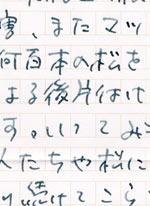 害、またマツ
何百本の松を
よる後片付け
す。いってみ
人たちや松に
り続けてこら